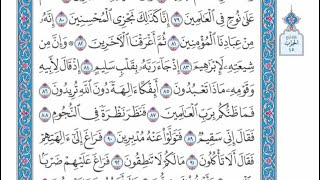 عَلَىٰ نُوحٍ فِي الْعَالَمِينَ ٧٩ إِنَّا كَذَٰلِكَ نَجْزِي الْمُحْسِنِينَ ٨٠ إِنَّهُ
مِنْ عِبَادِنَا الْمُؤْمِنِينَ ٨١ ثُمَّ أَغْرَقْنَا الْآخَرِينَ ٨٢ وَإِنَّ مِنْ
شِيعَتِهِ لَإِبْرَاهِيمَ ٨٣ إِذْ جَاءَ رَبَّهُ بِقَلْبٍ سَلِيمٍ ٨٤ إِذْ قَالَ لِأَبِيهِ
وَقَوْمِهِ مَاذَا تَعْبُدُونَ ٨٥ أَئِفْكًا آلِهَةً دُونَ اللَّهِ تُرِيدُونَ ٨٦
فَمَا ظَنُّكُمْ بِرَبِّ الْعَالَمِينَ ٨٧ فَنَظَرَ نَظْرَةً فِي النُّجُومِ ٨٨
فَقَالَ إِنِّي سَقِيمٌ ٨٩ فَتَوَلَّوْا عَنْهُ مُدْبِرِينَ ٩٠ فَرَاغَ إِلَىٰ آلِهَتِهِمْ
فَقَالَ أَلَا تَأْكُلُونَ ٩١ مَا لَكُمْ لَا تَنْطِقُونَ ٩٢ فَرَاغَ عَلَيْهِمْ ضَرْبًا